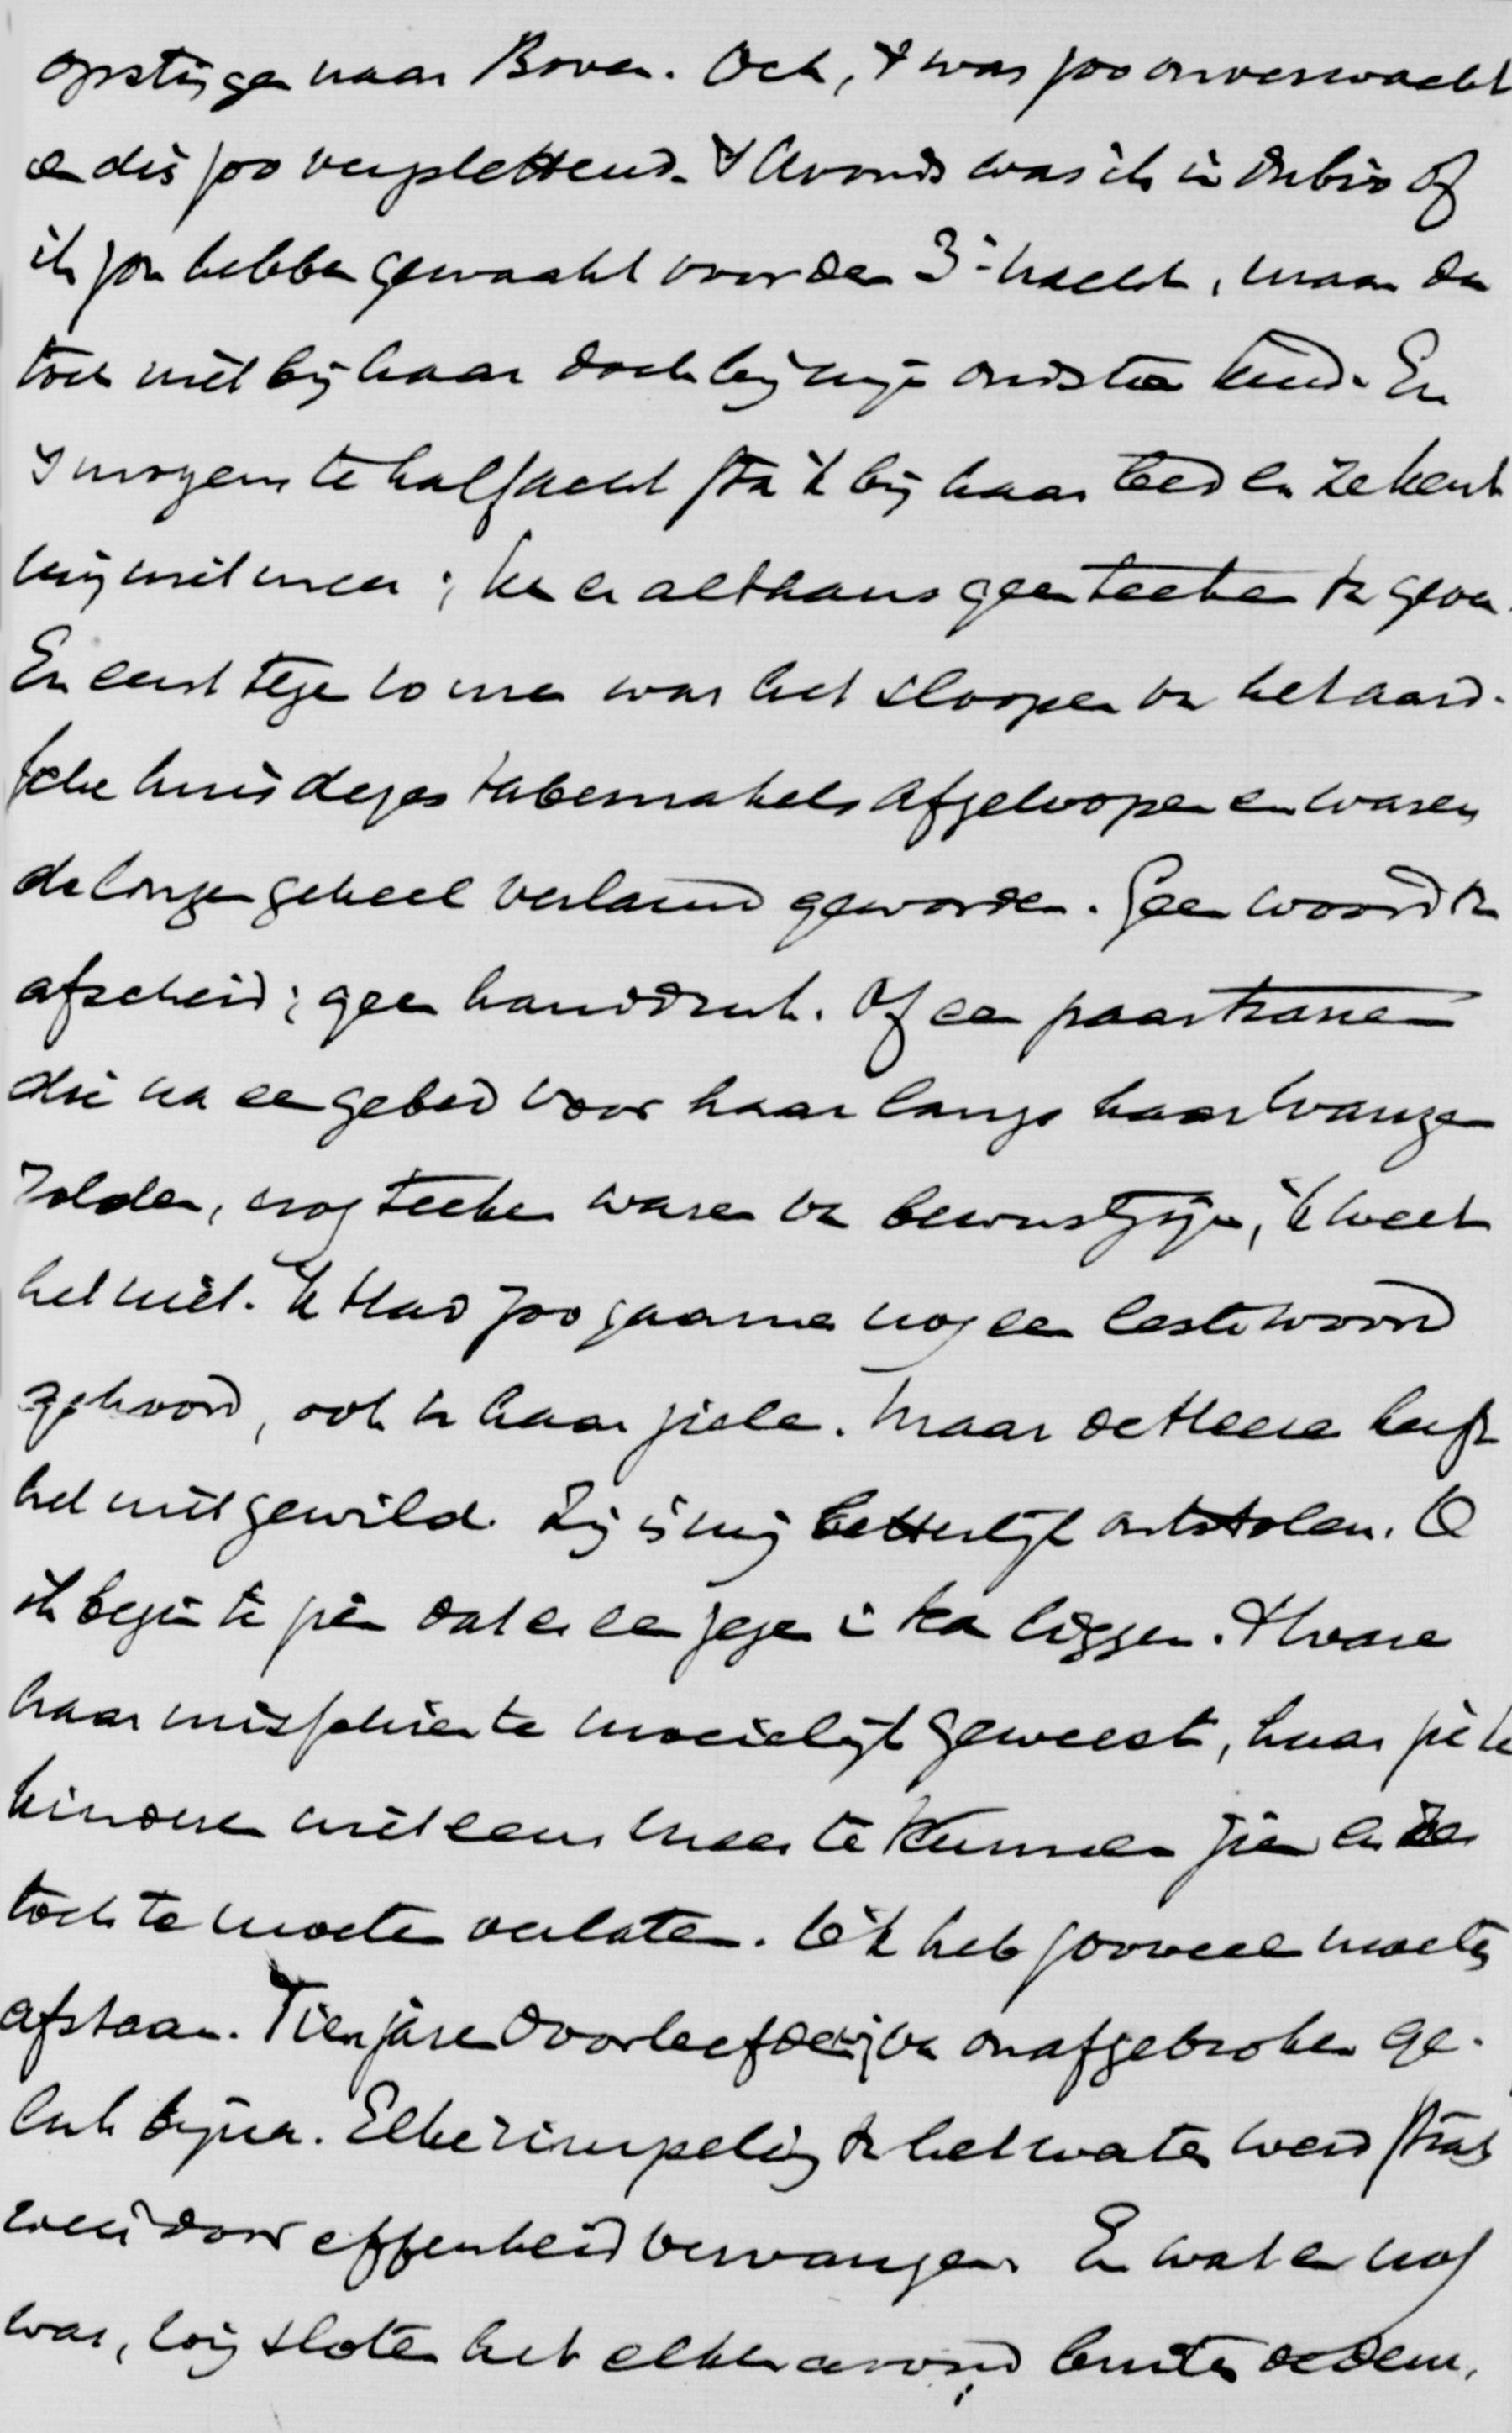 opstijgen naar Boven. Och, 't was zoo onverwacht
en dus zoo verpletterend. 's Avonds was ik in dubio of
ik zou hebben gewaakt voor den 3e nacht, maar dan
toch niet bij haar doch bij mijn oudste kind. En
's morgens te half acht sta 'k bij haar bed en ze kent
mij niet meer; ken er althans geen teeken van geven.
En eerst tegen 10 uur was het sloopen van het aard-
sche huis dezes tabernakels afgeloopen en waren
de longen geheel verlamd geworden. Geen woord van
afscheid; geen handdruk. Of een paar tranen
die na een gebed voor haar langs haar wangen
rolden, nog teeken waren van bewustzijn, 'k weet
het niet. 'k Had zoo gaarne nog een laatste woord
gehoord, ook van haar ziele. Maar de Heere heeft
het niet gewild. Zij is mij letterlijk ontstolen. O
ik begin te zien dat er een zegen in kan liggen. 't Ware
haar misschien te moeielijk geweest, haar zieke
kinderen niet eens meer te kunnen zien en ze
toch te moeten verlaten. O 'k heb zooveel moeten
afstaan. Tien jaren doorleefden wij van onafgebroken ge-
luk bijna. Elke rimpeling van het water werd straks
weer door effenheid vervangen. En wat er nog
was, wij sloten het elken avond buiten de deur,